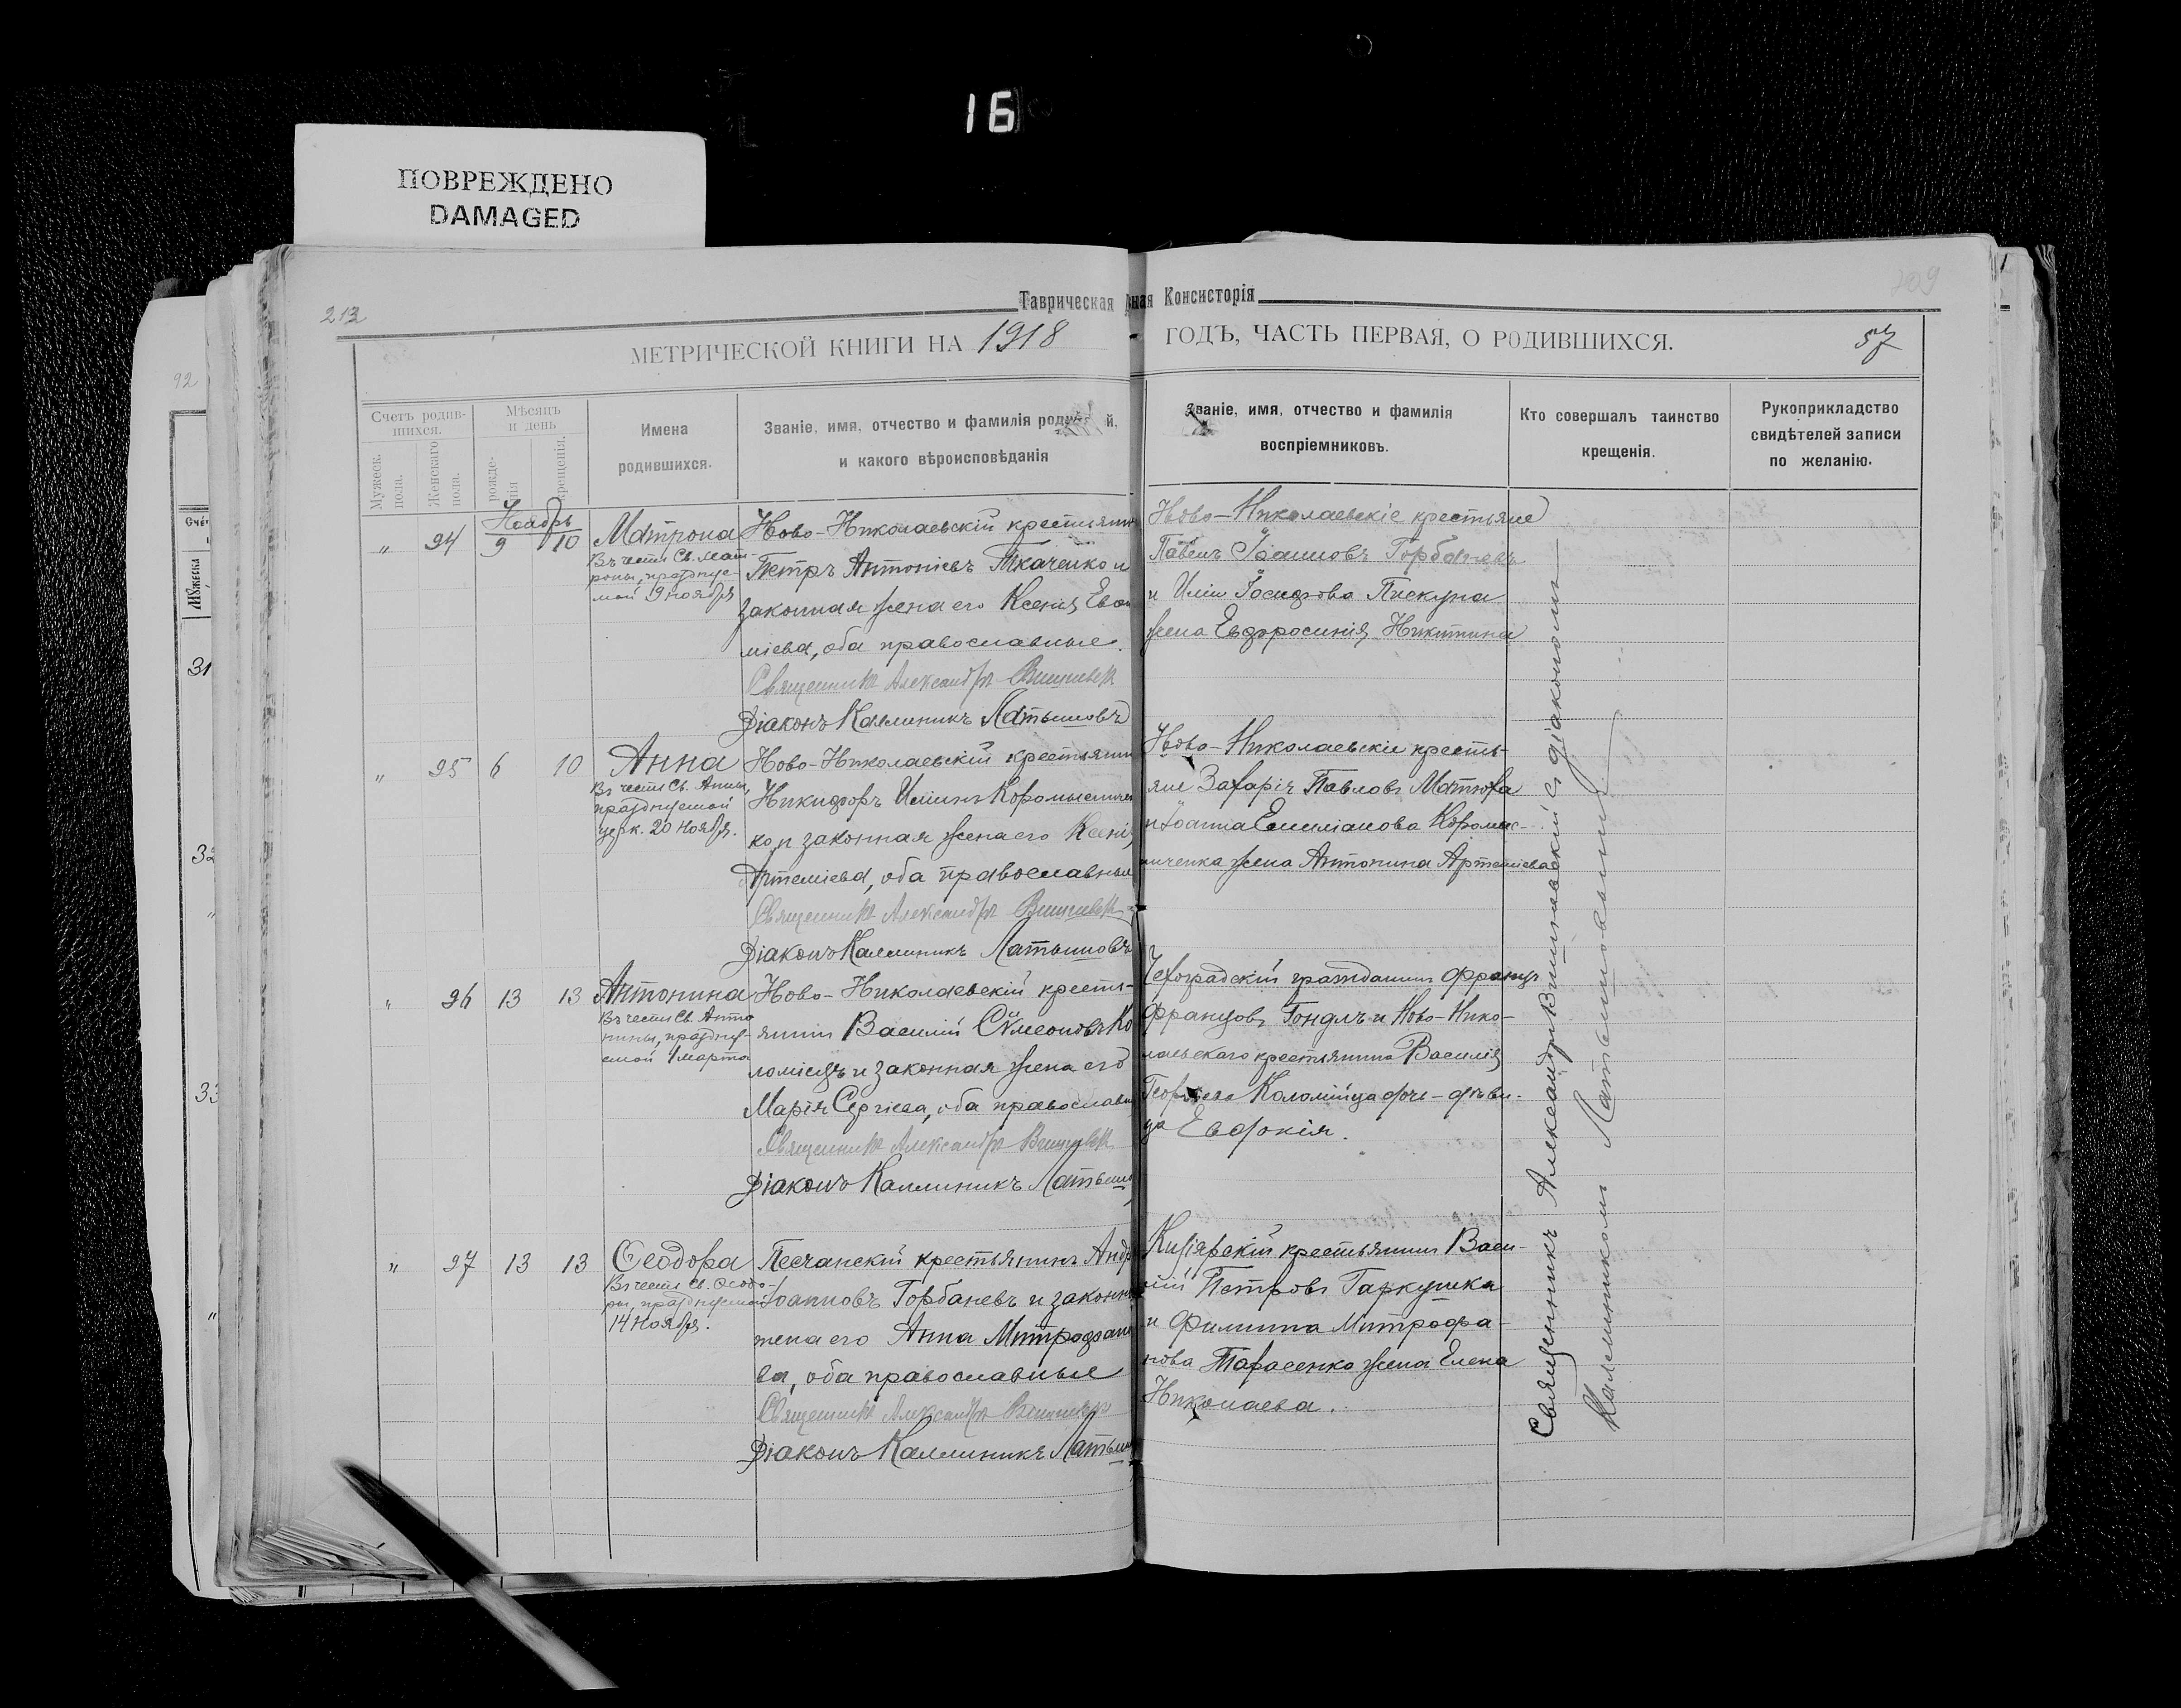 16
ПОВРЕЖДЕНО
DAMAGED
Таврическая ная Консисторія
213
МЕТРИЧЕСКОЙ КНИГИ НА 1918 ГОДЪ, ЧАСТЬ ПЕРВАЯ, О РОДИВШИХСЯ.
57
92
Счетъ родив-
шихся.
Мужеск.
пола.
Женскаго
пола.
Мѣсяцъ
и день
рожде-
нія
крещенія.
Имена
родившихся.
Званіе, имя, отчество и фамилія родителей,
и какого вѣроисповѣданія
Званіе, имя, отчество и фамилія
воспріемниковъ.
Кто совершалъ таинство
крещенія.
Рукоприкладство
свидѣтелей записи
по желанію.
Ноябрь
„ 24 9 10
Матрона
Въ честь Св. Мат-
роны, празднуе-
мой 9 ноября
Ново-Николаевскій крестьянин
Петръ Антоніевъ Ткаченко и
законная жена его Ксенія Евѳи
міева, оба православные.
Священникъ Александръ Вишневск
Діаконъ Каллиникъ Латышовъ
Ново-Николаевскіе крестьяне
Павелъ Іоанновъ Горбаневъ
и Иліи Іосифова Пискуна
жена Евфросинія Никитина
„ 25 6 10
Анна
Въ честь Св. Анны,
празднуемой
церк. 20 ноября.
Ново-Николаевскій крестьянин
Никифоръ Иліинъ Коромысличен
ко и законная жена его Ксенія
Артеміева, оба православные
Священникъ Александръ Вишневск
Діаконъ Каллиникъ Латышовъ
Ново-Николаевскіе кресть-
яне Захарія Павловъ Матюха
и Іоанна Емиліанова Коромыс-
личенка жена Антонина Артеміева
„ 26 13 13
Антонина
Въ честь Св. Анто
нины, праздну-
емой 1 марта
Ново-Николаевскій кресть-
янинъ Василій Сѵмеоновъ Ко
ломіецъ и законная жена его
Марія Сергіева, оба православн
Священникъ Александръ Вишневск
Діаконъ Каллиникъ Латыш
Чехоградскій гражданинъ Францъ
Францовъ Гондлъ и Ново-Нико-
лаевскаго крестьянина Василія
Георгіева Коломійца дочь-дѣви-
ца Евдокія.
„ 27 13 13
Ѳеодора
Въ честь Св. Ѳеодо-
ры, празднуемой
14 ноября.
Песчанскій крестьянинъ Андр
Іоанновъ Горбаневъ и законн
жена его Анна Митрофано
ва, оба православные
Священникъ Александръ Вишневск
Діаконъ Каллиникъ Латыш
Кизіярскій крестьянинъ Васи-
лій Петровъ Гаркушка
и Филиппа Митрофа-
нова Тарасенко жена Елена
Николаева.
Священникъ Александръ Вишневскій с діакономъ
Каллиникомъ Латышовымъ
31
32
33